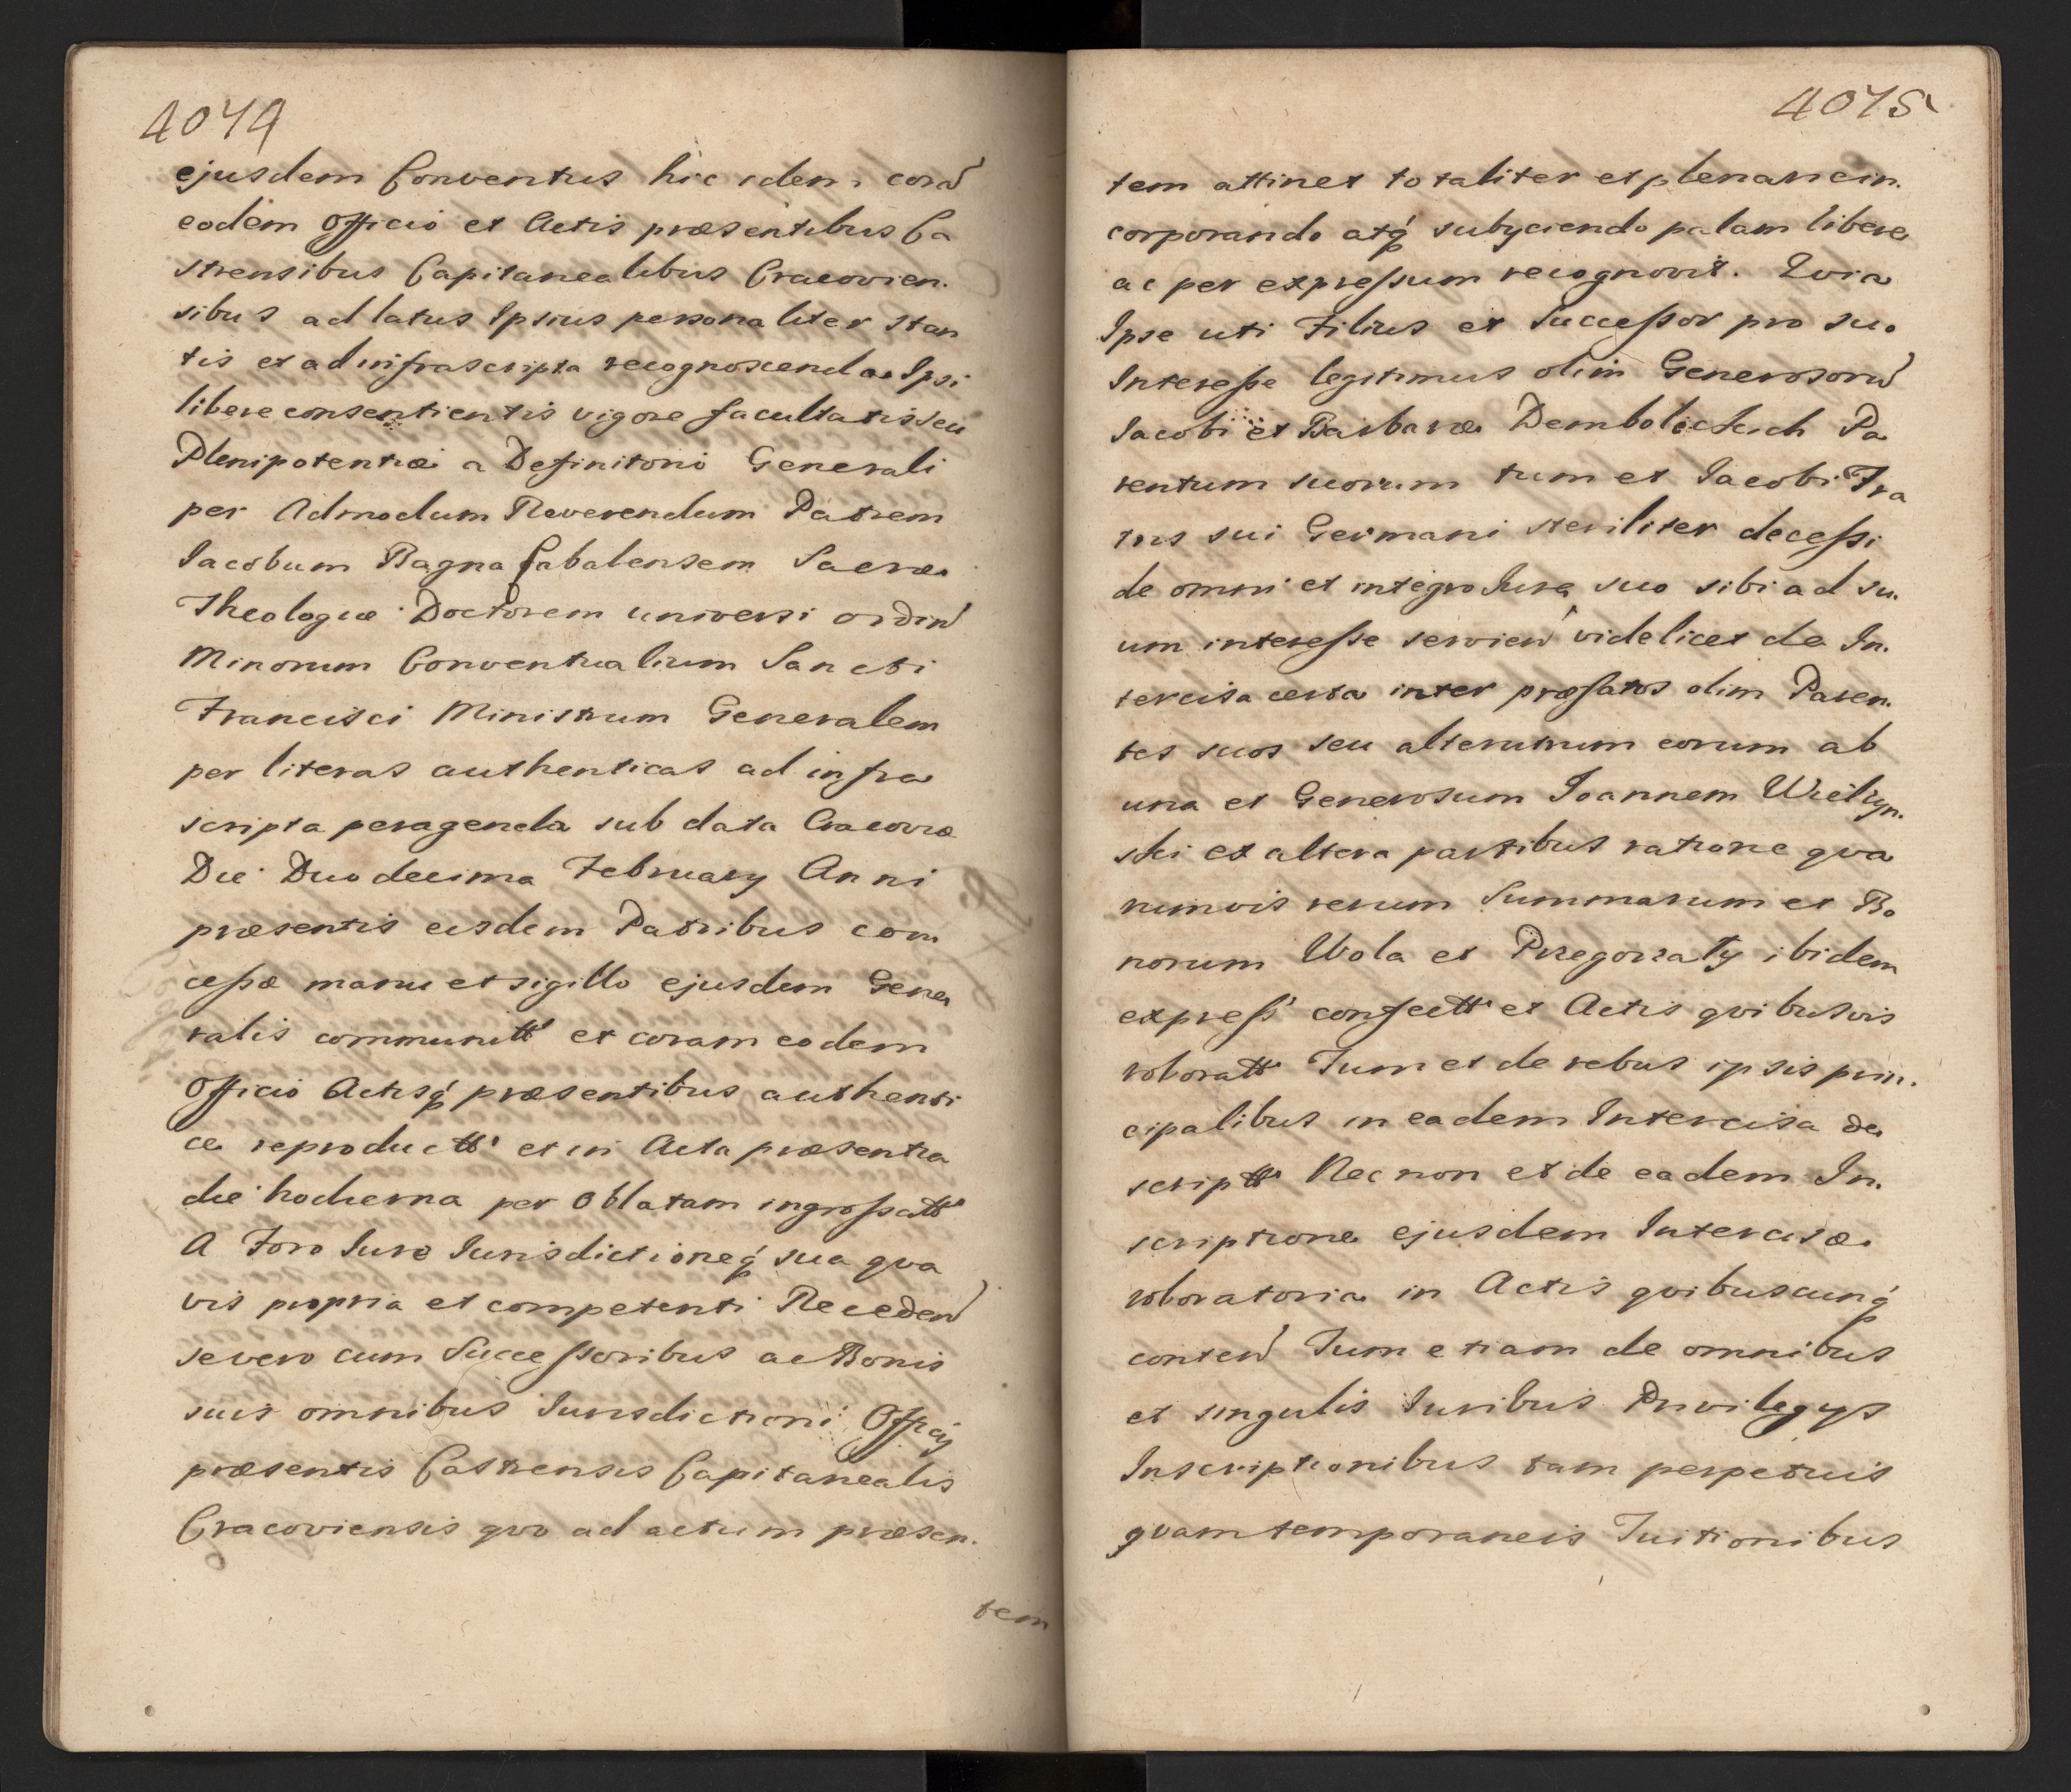 4074
ejusdem Conventus hic idem corā
eodem Officio et Actis præsentibus Ca
strensibus Capitanealibus Cracovien.
sibus ad latus Ipsius personaliter Stan
tis et ad infrascripta recognoscenda Ipsi
libere consentientis vigore facultatis seu
Plenipotentiæ a Definitorio Generali
per Admodum Reverendum Patrem
Jacobum Bagna Cabalensem Sacræ
Theologiæ Doctorem universi ordin̄
Minorum Conventualium Sancti
Francisci Ministrum Generalem
per literas authenticas ad infra
scripta peragenda sub data Cracoviæ
Die Duodecima February Anni
præsentis eisdem Patribus con
ceſsæ manu et sigillo ejusdem Gene
ralis communitt et coram eodem
Officio Actisq́ præsentibus authenti
ce reproductt et in Acta præsentia
die hodierna per Oblatam ingroſsatt
A Foro Jure Jurisdictioneq́ sua qva
vis propria et competenti Receden̄
se vero cum Succeſsoribus ac Bonis
suis omnibus Jurisdictioni Officij
præsentis Castrensis Capitanealis
Cracoviensis qvo ad actum præsen.
tem
4075
tem attinet totaliter et plenarie in.
corporando atq́ subyciendo palam libere
ac per expreſsum recognovit. Qvia
Ipse uti Filius et Succeſsor pro suo
Intereſse legitimus olim Generosorū
Jacobi et Barbaræ Dembolickich Pa
rentum suorum tum et Jacobi Fra
tris sui Germani steriliter deceſsi
de omni et integro Jure suo sibi ad su.
um intereſse servien̄ videlicet de In.
tercisa certa inter præfatos olim Paren.
tes suos seu alterutrum eorum ab
una et Generosum Joannem Wielzyn.
ski ex altera partibus ratione qva
rumvis rerum Summarum et Bo
norum Wola et Przegorzaly ibidem
expreſs' confectt et Actis qvibusvis
roboratt Tum et de rebus ipsis prin.
cipalibus in eadem Intercisa de
scriptt Nec non et de eadem In.
scriptione ejusdem Intercisæ
roboratoria in Actis qvibuscunq́
conten̄ Tum etiam de omnibus
et singulis Juribus Privilegys
Inscriptionibus tam perpetuis
qvam temporaneis Tuitionibus